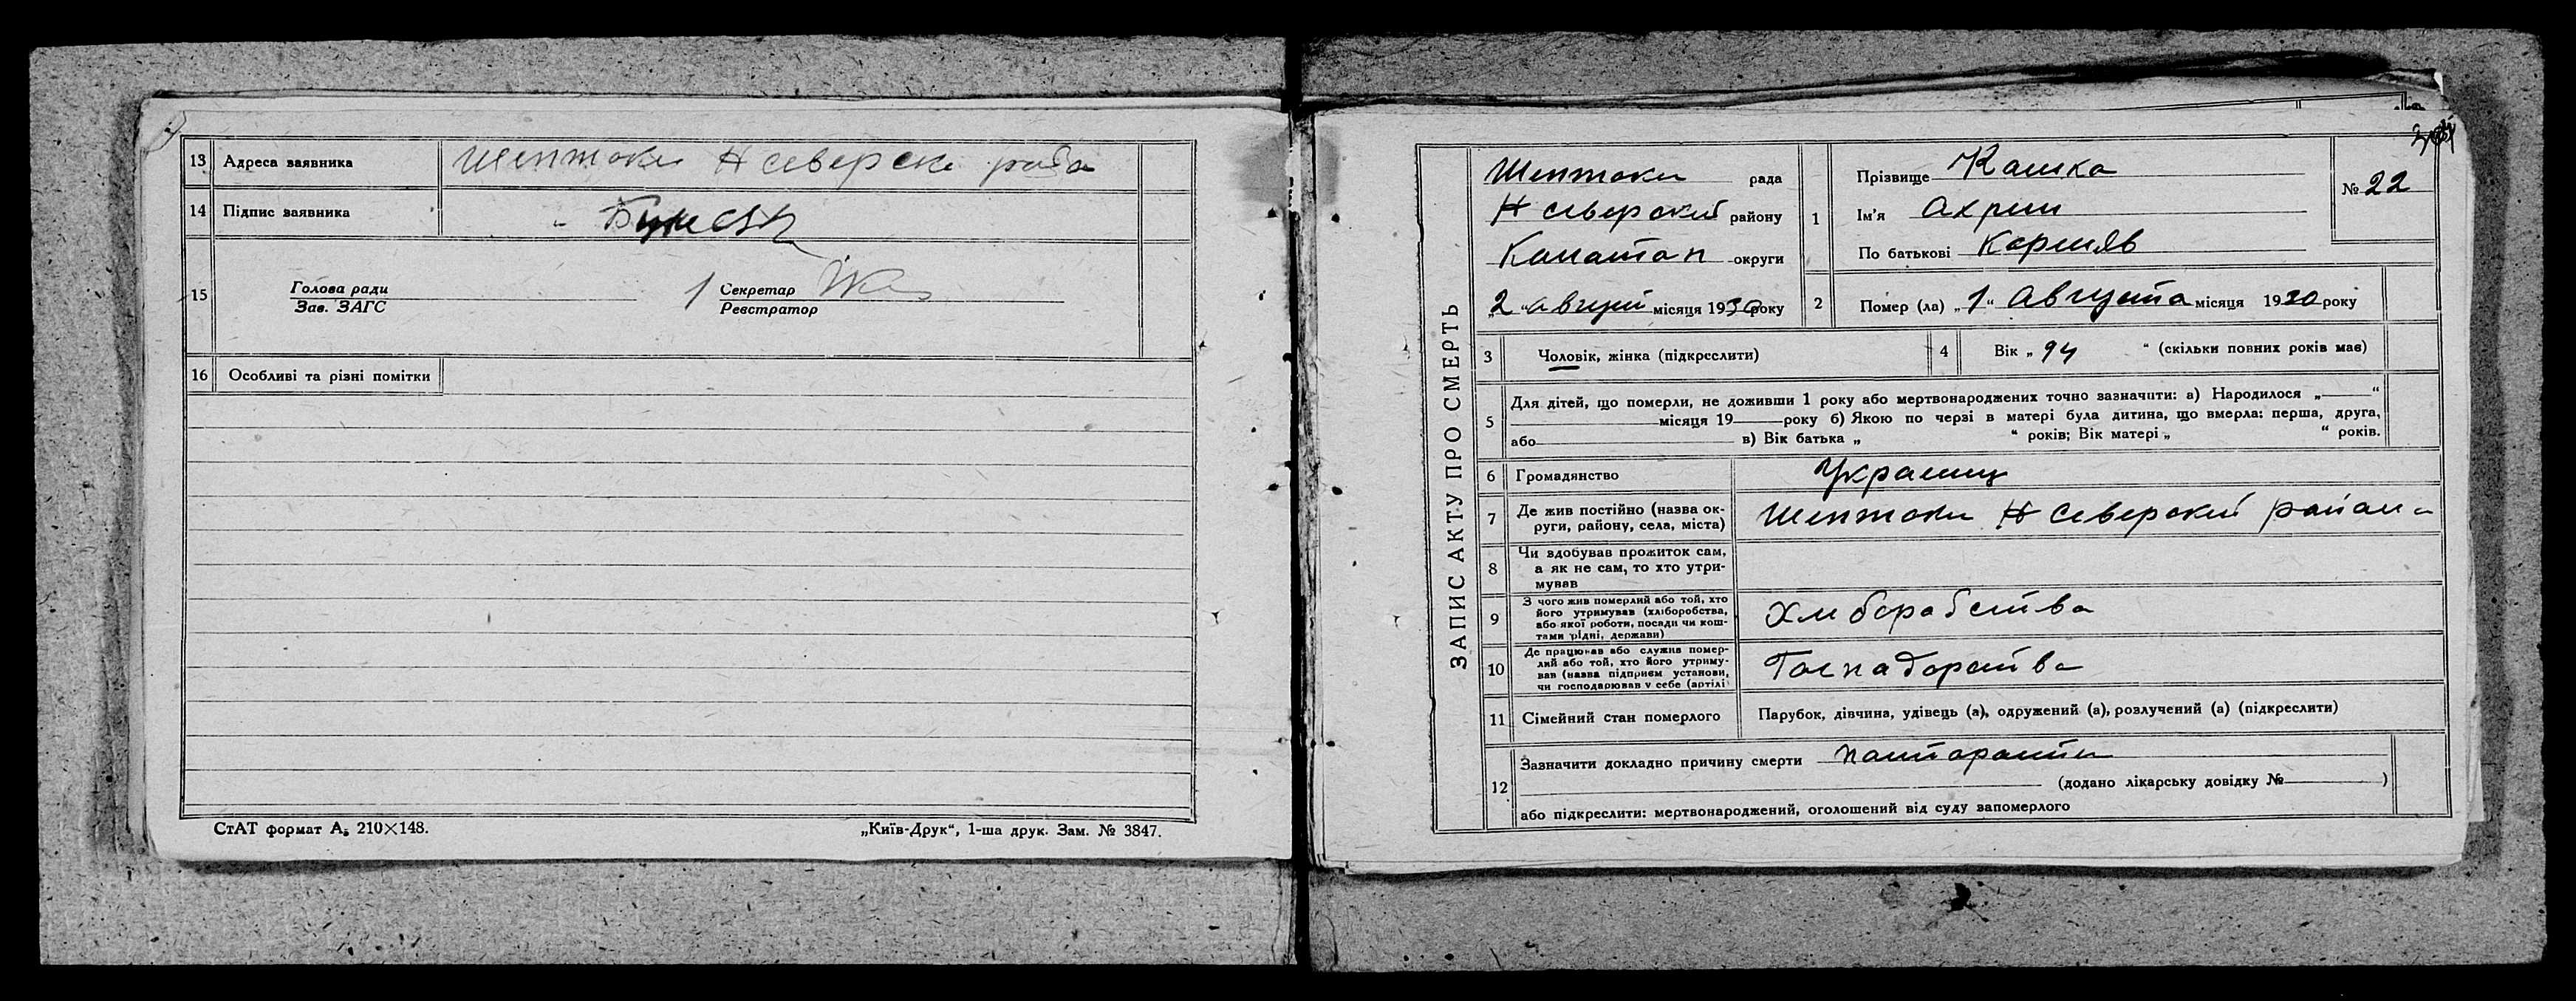 13 Адреса заявника Шептоки Н Северске рада
14 Підпис заявника
15 Голова ради
Зав. ЗАГС
Секретар
Реєстратор
16 Особливі та різні помітки
СтАТ формат А₅ 210×148.
„Київ-Друк“, 1-ша друк. Зам. № 3847.
ЗАПИС АКТУ ПРО СМЕРТЬ
Шептоки рада
Н Северский району
Канатоп округи
„2“ месяця 1930 року
1 Прізвище Кашка
Ім'я
По батькові
№ 22
2 Помер (ла) „1“ Августа місяця 1930 року
3 Чоловік, жінка (підкреслити)
4 Вік „94“ (скільки повних років мав)
5 Для дітей, що померли, не доживши 1 року або мертвонароджених точно зазначити: а) Народилося „ “
місяця 19 року б) Якою по черзі в матері була дитина, що вмерла: перша, друга,
або в) Вік батька „ “ років; Вік матері „ “ років.
6 Громадянство Украинц
7 Де жив постійно (назва ок-
руги, району, села, міста) Шептоки Н Северский района
8 Чи здобував прожиток сам,
а як не сам, то хто утри-
мував
9 З чого жив померлий або той, хто
його утримував (хліборобства,
або якої роботи, посади чи кош-
тами рідні, держави) Хлиборабства
10 Де працював або служив помер-
лий або той, хто його утриму-
вав (назва підприєм установи,
чи господарював у себе (артілі Госпадорства
11 Сімейний стан померлого Парубок, дівчина, удівець (а), одружений (а), розлучений (а) (підкреслити)
12 Зазначити докладно причину смерти
(додано лікарську довідку № )
або підкреслити: мертвонароджений, оголошений від суду запомерлого